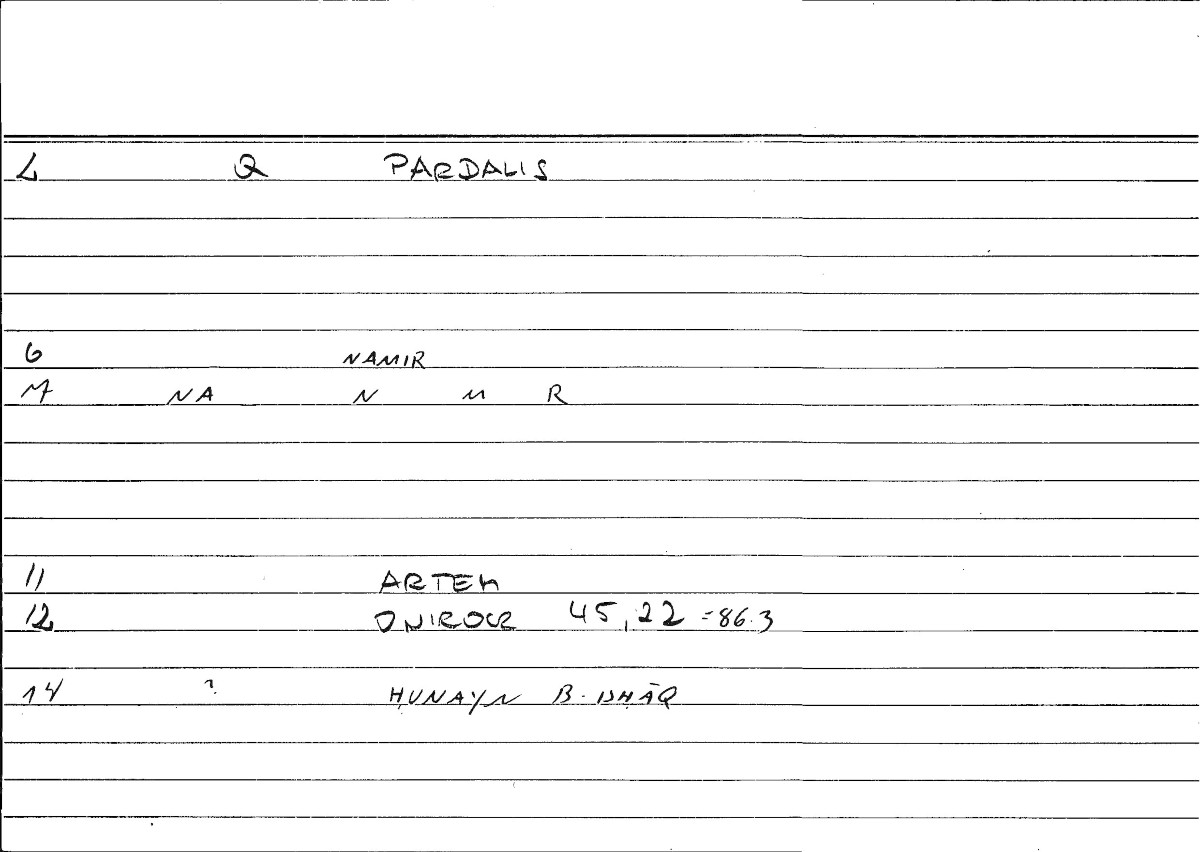 L Q PARDALIS
6 NAMIR
7 NA N M R
11 ARTEM
12 ONIROCR 45,22 =86.3
14 ? ḤUNAYN B. ISḤĀQ